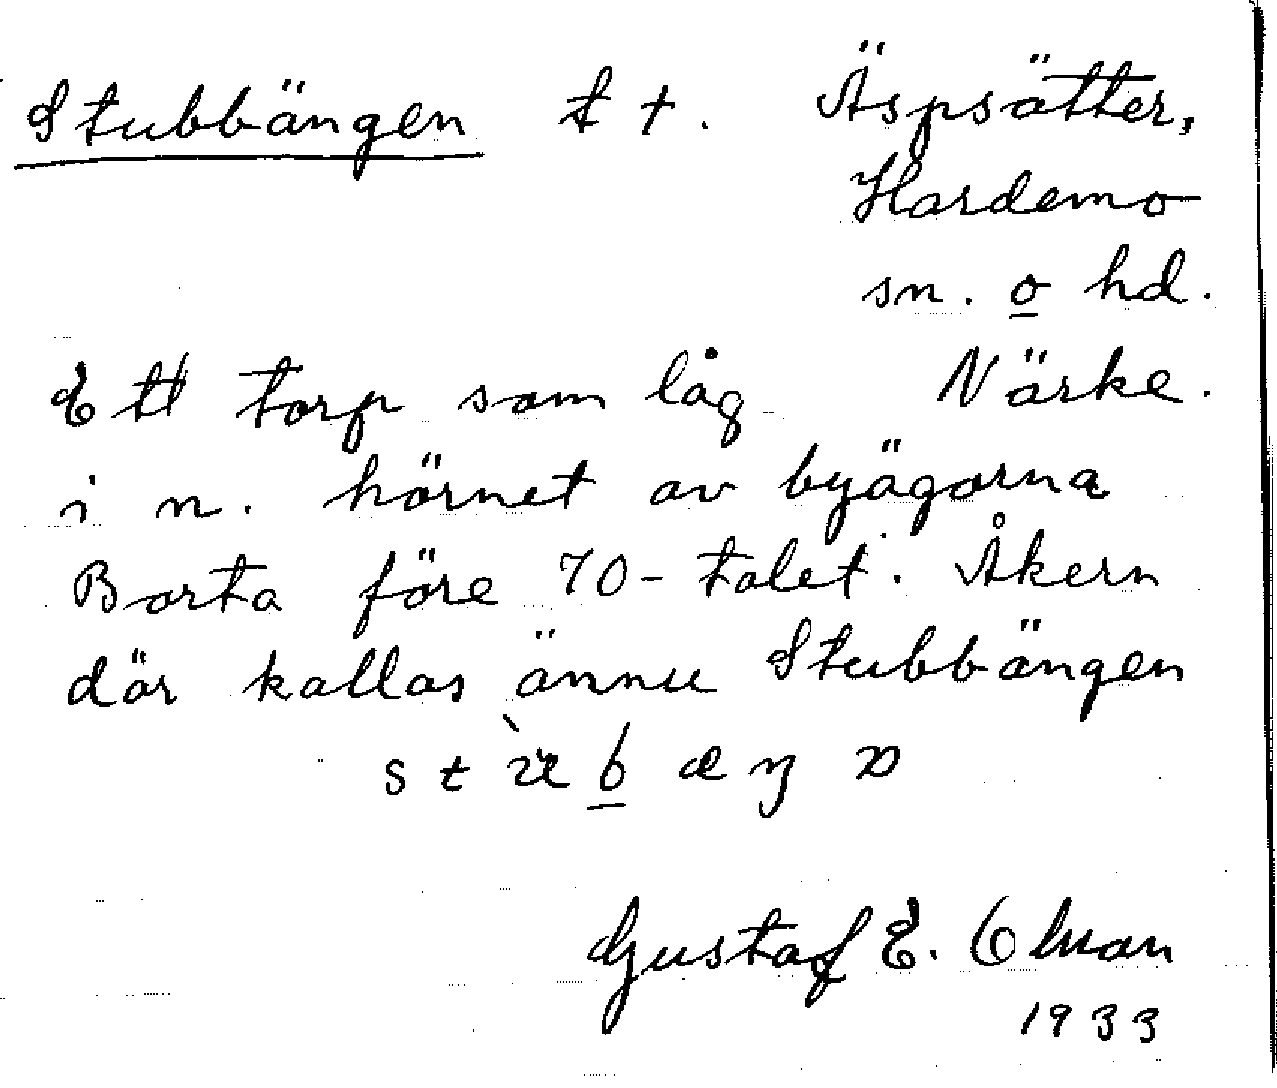 Stubbängen t t. Äspsätter,
Hardemo
sn. o hd.
Ett torp som låg Närke.
i n. hörnet av byägorna
Borta före 70-talet. Åkern
där kallas ännu Stubbängen
Gustaf E.
1933